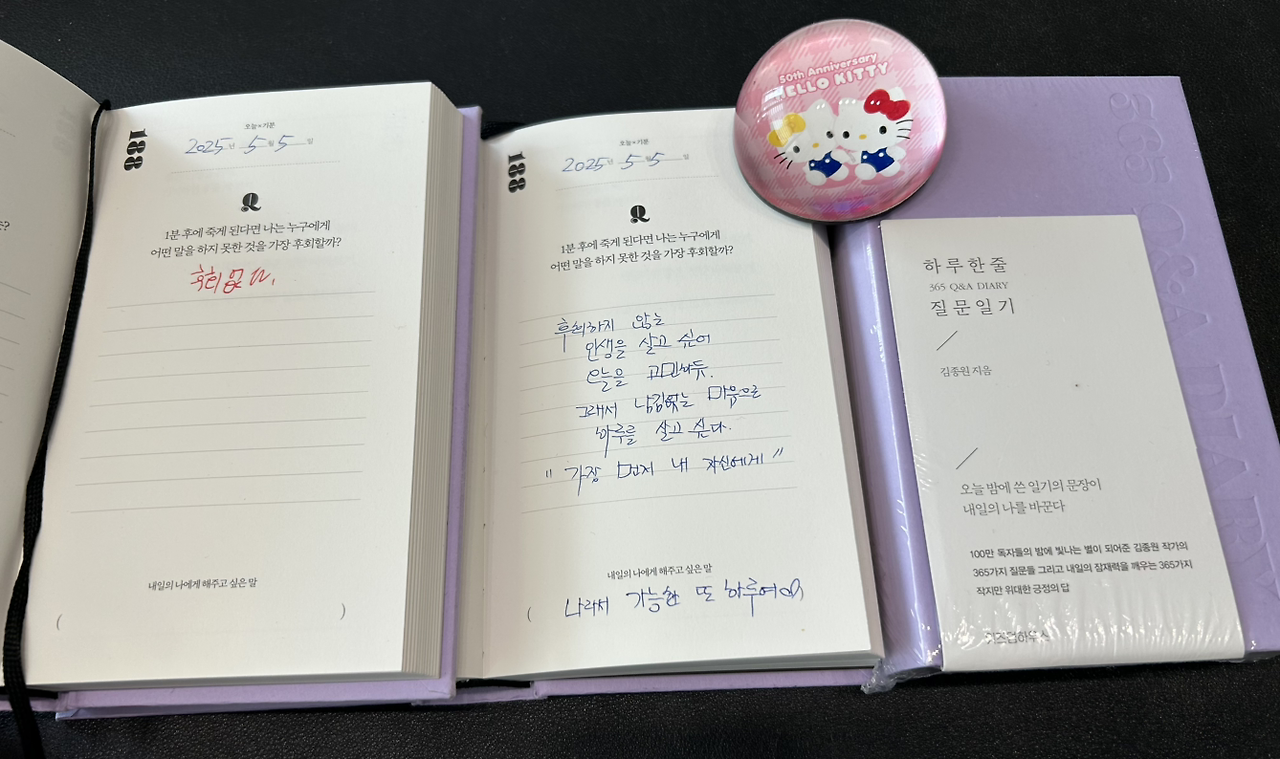 188
오늘의 기분
2025년 5월 5일
Q
1분 후에 죽게 된다면 나는 누구에게
어떤 말을 하지 못한 것을 가장 후회할까?
후회 없다.
내일의 나에게 해주고 싶은 말
( )
188
오늘의 기분
2025년 5월 5일
Q
1분 후에 죽게 된다면 나는 누구에게
어떤 말을 하지 못한 것을 가장 후회할까?
후회하지 않는
인생을 살고 싶어
오늘을
그래서 남김없는 마음으로
하루를 살고 싶다.
"가장 먼저 내 자신에게"
내일의 나에게 해주고 싶은 말
( 나라서 가능한 또 하루여
50th Anniversary
HELLO KITTY
365 Q&A DIARY
하루 한 줄
365 Q&A DIARY
질문 일기
김종원 지음
오늘 밤에 쓴 일기의 문장이
내일의 나를 바꾼다
100만 독자들의 밤에 빛나는 별이 되어준 김종원 작가의
365가지 질문들 그리고 내일의 잠재력을 깨우는 365가지
작지만 위대한 긍정의 답